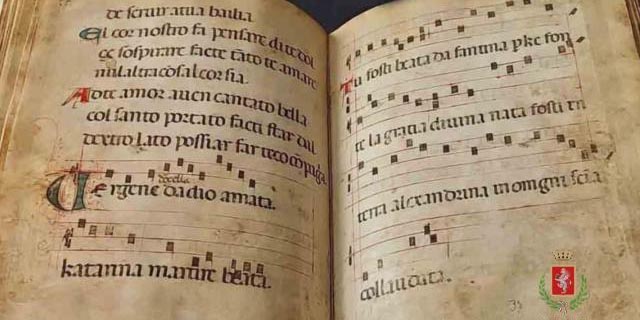 de seruir atua bailia
El cor nostro fa pensare di te dol
ce sospirare facte tāto te amare
nulaltra cosa al cor sia.
A o te amor auen cantato bella
col santo portato facti star dal
dextro lato possiā far teco
Uergene da dio amata.
katarina martire beata.
Tu fosti beata da fantina pke fon
te la gratia diuina nata fosti en
terra alexandrina in omgni
collaudata.